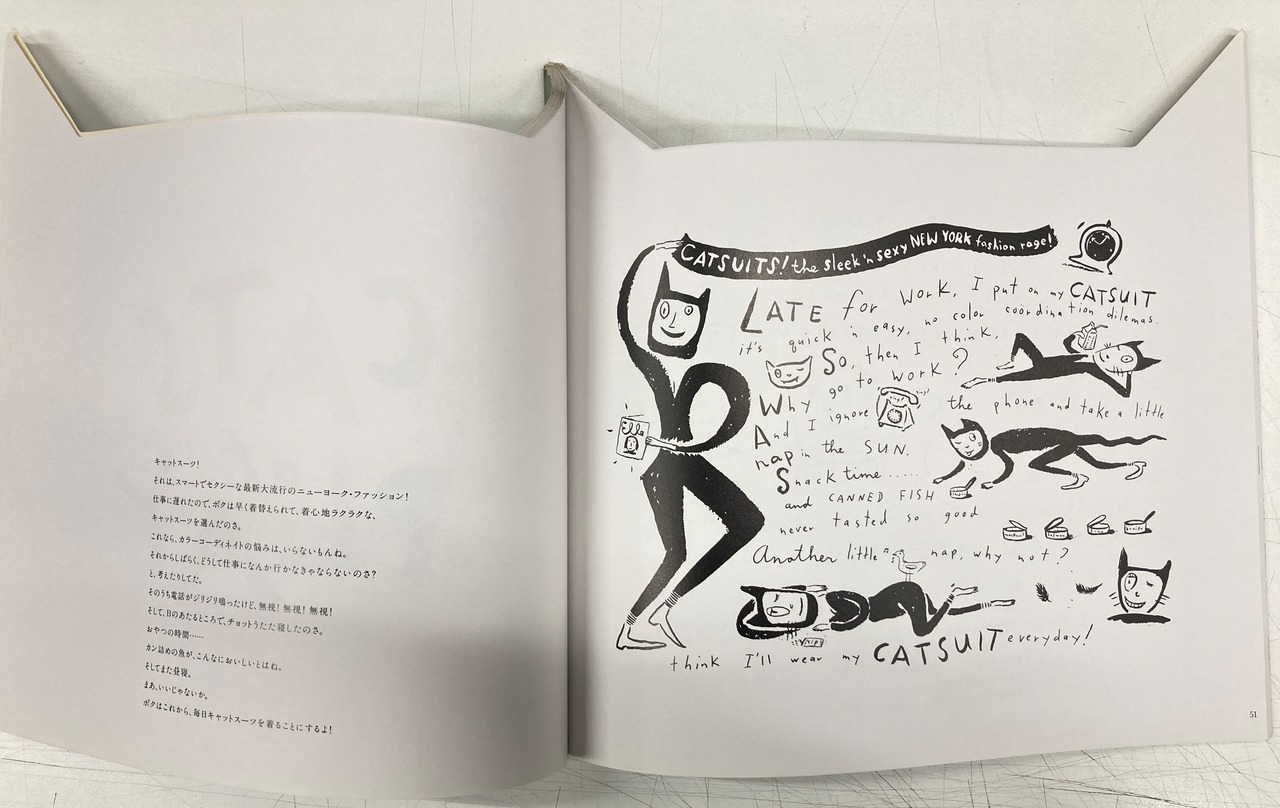 キャットスーツ!
それは、スマートでセクシーな最新大流行のニューヨーク・ファッション!
仕事に遅れたので、ボクは早く着替えられて、着心地ラクラクな、
キャットスーツを選んだのさ。
これなら、カラーコーディネイトの悩みは、いらないもんね。
それからしばらく、どうして仕事になんか行かなきゃならないのさ?
と、考えたりしてた。
そのうち電話がジリジリ鳴ったけど、無視!無視!無視!
そして、日のあたるところで、チョットうたた寝したのさ。
おやつの時間……
カン詰めの魚が、こんなにおいしいとはね。
そしてまた昼寝。
まあ、いいじゃないか。
ボクはこれから、毎日キャットスーツを着ることにするよ!
CATSUITS! the sleek 'n sexy NEW YORK fashion rage!
LATE for WORK, I put on my CATSUIT
it's quick 'n easy, no color coordination dilemas.
So, then I think,
Why go to work?
And I ignore the phone and take a little
nap in the SUN.
Snack time.....
and CANNED FISH
never tasted so good
Another little nap, why not?
think I'll wear my CATSUIT everyday!
51